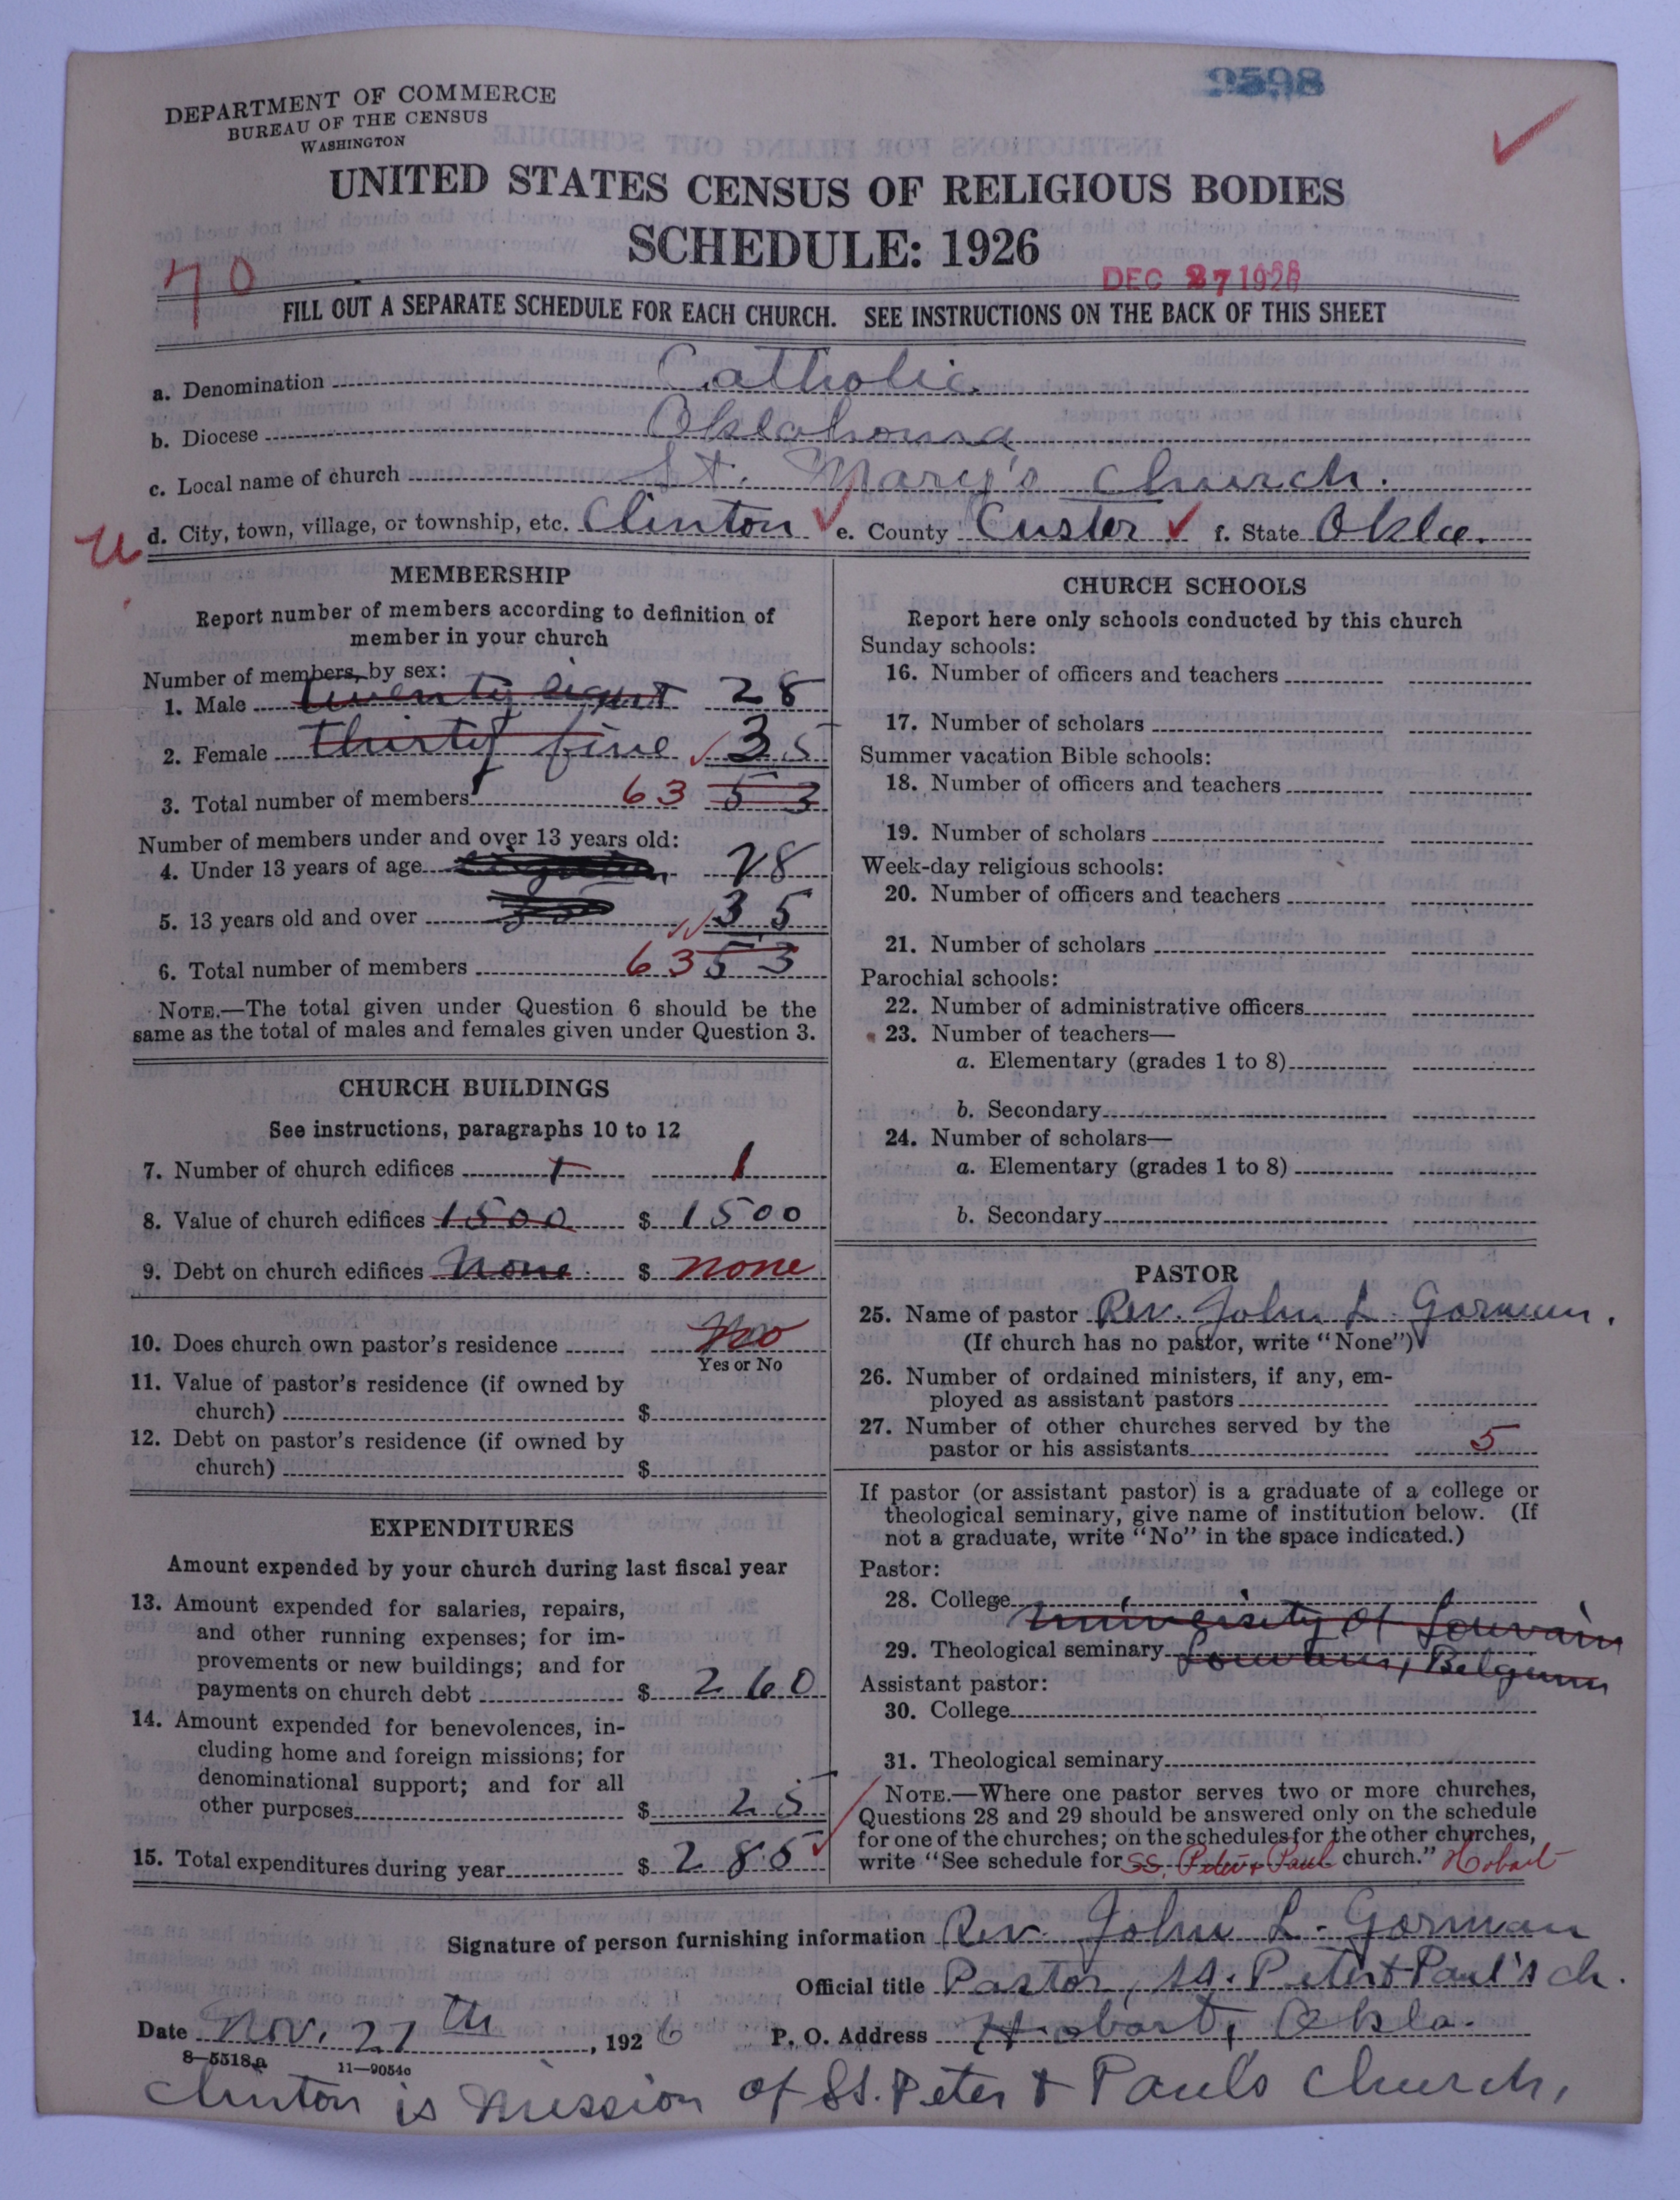 9598
DEPARTMENT OF COMMERCE
BUREAU OF THE CENSUS
WASHINGTON
UNITED STATES CENSUS OF RELIGIOUS BODIES
SCHEDULE: 1926
70
DEC 27 1926
FILL OUT A SEPARATE SCHEDULE FOR EACH CHURCH. SEE INSTRUCTIONS ON THE BACK OF THIS SHEET
a. Denomination Catholic
b. Diocese Oklahoma
c. Local name of church St. Mary's Church.
U d. City, town, village, or township, etc. Clinton e. County Custer f. State Okla.
MEMBERSHIP
Report number of members according to definition of
member in your church
Number of members, by sex:
1. Male twenty eight 28
2. Female thirty five 35
3. Total number of members 63 53
Number of members under and over 13 years old:
4. Under 13 years of age 28
5. 13 years old and over 35
6. Total number of members 63 53
NOTE.—The total given under Question 6 should be the
same as the total of males and females given under Question 3.
CHURCH BUILDINGS
See instructions, paragraphs 10 to 12
7. Number of church edifices 1 1
8. Value of church edifices 1500 $ 1500
9. Debt on church edifices None $ none
10. Does church own pastor's residence No
Yes or No
11. Value of pastor's residence (if owned by
church) $
12. Debt on pastor's residence (if owned by
church) $
EXPENDITURES
Amount expended by your church during last fiscal year
13. Amount expended for salaries, repairs,
and other running expenses; for im-
provements or new buildings; and for
payments on church debt $ 260
14. Amount expended for benevolences, in-
cluding home and foreign missions; for
denominational support; and for all
other purposes $ 25
15. Total expenditures during year $ 285
CHURCH SCHOOLS
Report here only schools conducted by this church
Sunday schools:
16. Number of officers and teachers
17. Number of scholars
Summer vacation Bible schools:
18. Number of officers and teachers
19. Number of scholars
Week-day religious schools:
20. Number of officers and teachers
21. Number of scholars
Parochial schools:
22. Number of administrative officers
23. Number of teachers—
a. Elementary (grades 1 to 8)
b. Secondary
24. Number of scholars—
a. Elementary (grades 1 to 8)
b. Secondary
PASTOR
25. Name of pastor Rev. John L. Gorman.
(If church has no pastor, write "None")
26. Number of ordained ministers, if any, em-
ployed as assistant pastors
27. Number of other churches served by the
pastor or his assistants 5
If pastor (or assistant pastor) is a graduate of a college or
theological seminary, give name of institution below. (If
not a graduate, write "No" in the space indicated.)
Pastor:
28. College University of Louvain
29. Theological seminary Louvain, Belgium
Assistant pastor:
30. College
31. Theological seminary
NOTE.—Where one pastor serves two or more churches,
Questions 28 and 29 should be answered only on the schedule
for one of the churches; on the schedules for the other churches,
write "See schedule for SS. Peter & Paul church." Hobart
Signature of person furnishing information Rev. John L. Gorman
Official title Pastor, SS. Peter & Paul's ch.
Date Nov. 27th, 1926 P. O. Address Hobart, Okla.
8—5518a 11—9054c
Clinton is Mission of SS. Peter & Paul's Church,